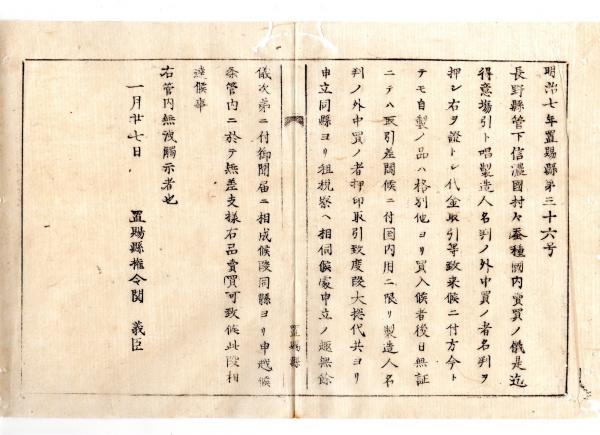 明治七年置賜縣第三十六号
長野縣管下信濃國村々蚕種國内賣買ノ儀是迄
得意場引ト唱製造人名判ノ外中買ノ者名判ヲ
押シ右ヲ證トシ代金取引等致来候ニ付方今ト
テモ自製ノ品ハ格別他ヨリ買入候者後日無証
ニテハ取引差閊候ニ付国内用ニ限リ製造人名
判ノ外中買ノ者押印取引致度段大惣代共ヨリ
申立同縣ヨリ租税寮ヘ相伺候處申立ノ趣無餘
置賜縣
儀次第ニ付御聞届ニ相成候段同縣ヨリ申越候
条管内ニ於テ無差支様右品賣買可致候此段相
達候事
右管内無洩觸示者也
一月廿七日
置賜縣権令関 義臣